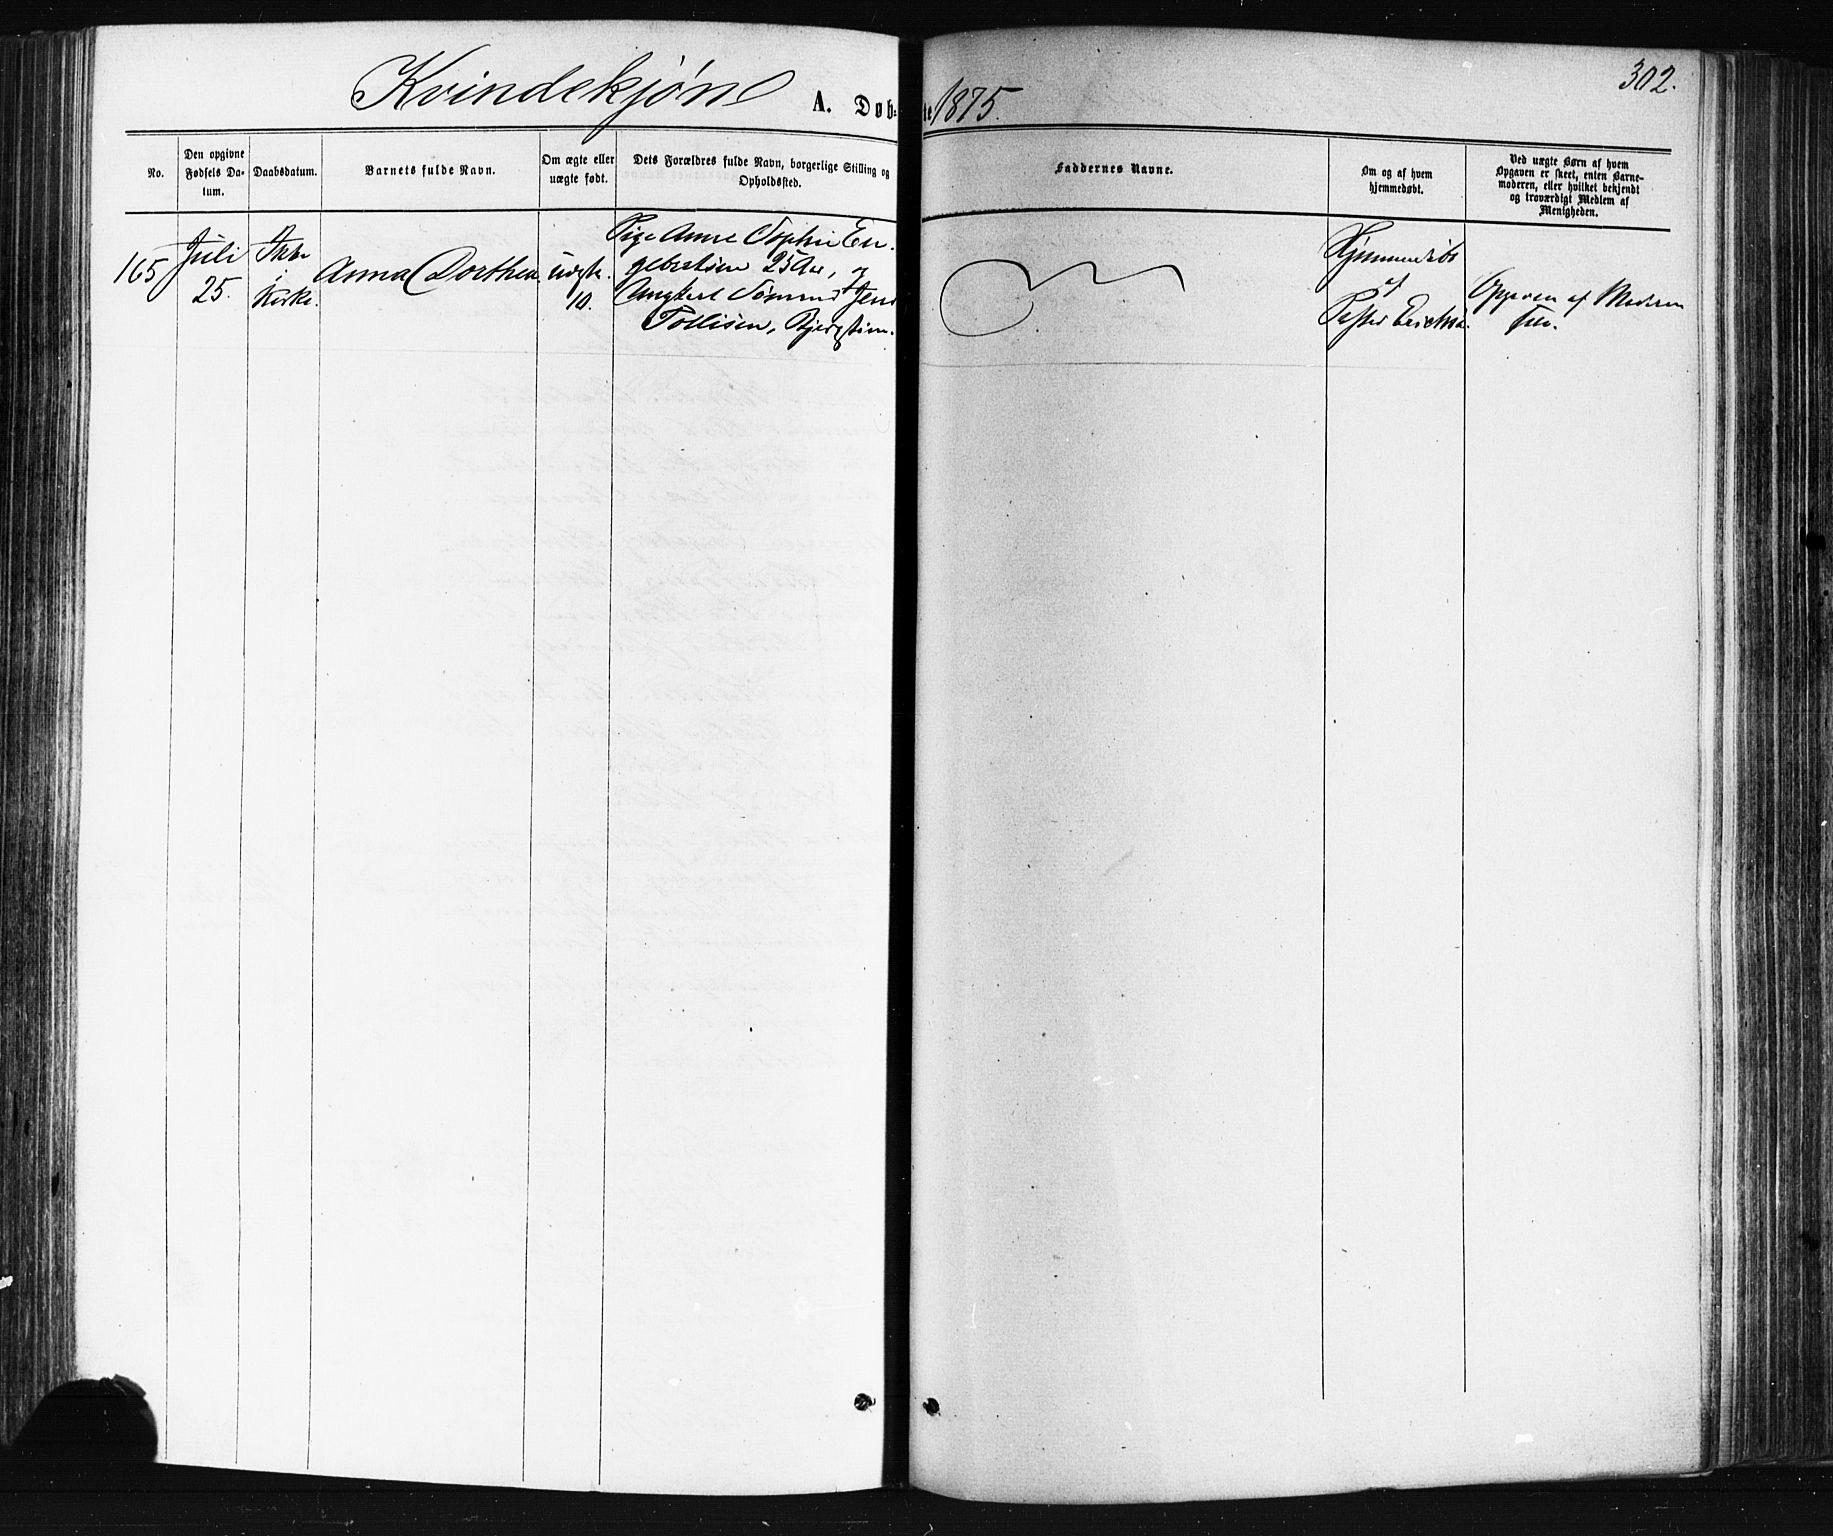 302.
Kvindekjøn A. Døb- te 1875.
No.
Den opgivne
Fødsels Da-
tum.
Daabsdatum.
Barnets fulde Navn.
Om ægte eller
uægte født.
Dets Forældres fulde Navn, borgerlige Stilling og
Opholdssted.
Faddernes Navne.
Om og af hvem
hjemmedøbt.
Ved uægte Børn af hvem
Opgaven er skeet, enten Barne-
moderen, eller hvilket bekjendt
og troværdigt Medlem af
Menigheden.
165
Juli
25.
Ikke
i
Kirke.
Anna Dorthea
Uægte.
10.
Pige Anne Sophie En-
gebretsen 25 Aar, og
Ungkarl Sømand Jens
Tollisen, Bjergstien.
Hjemmedøbt
af
Erichsen
Opgaven af Moderen
selv.